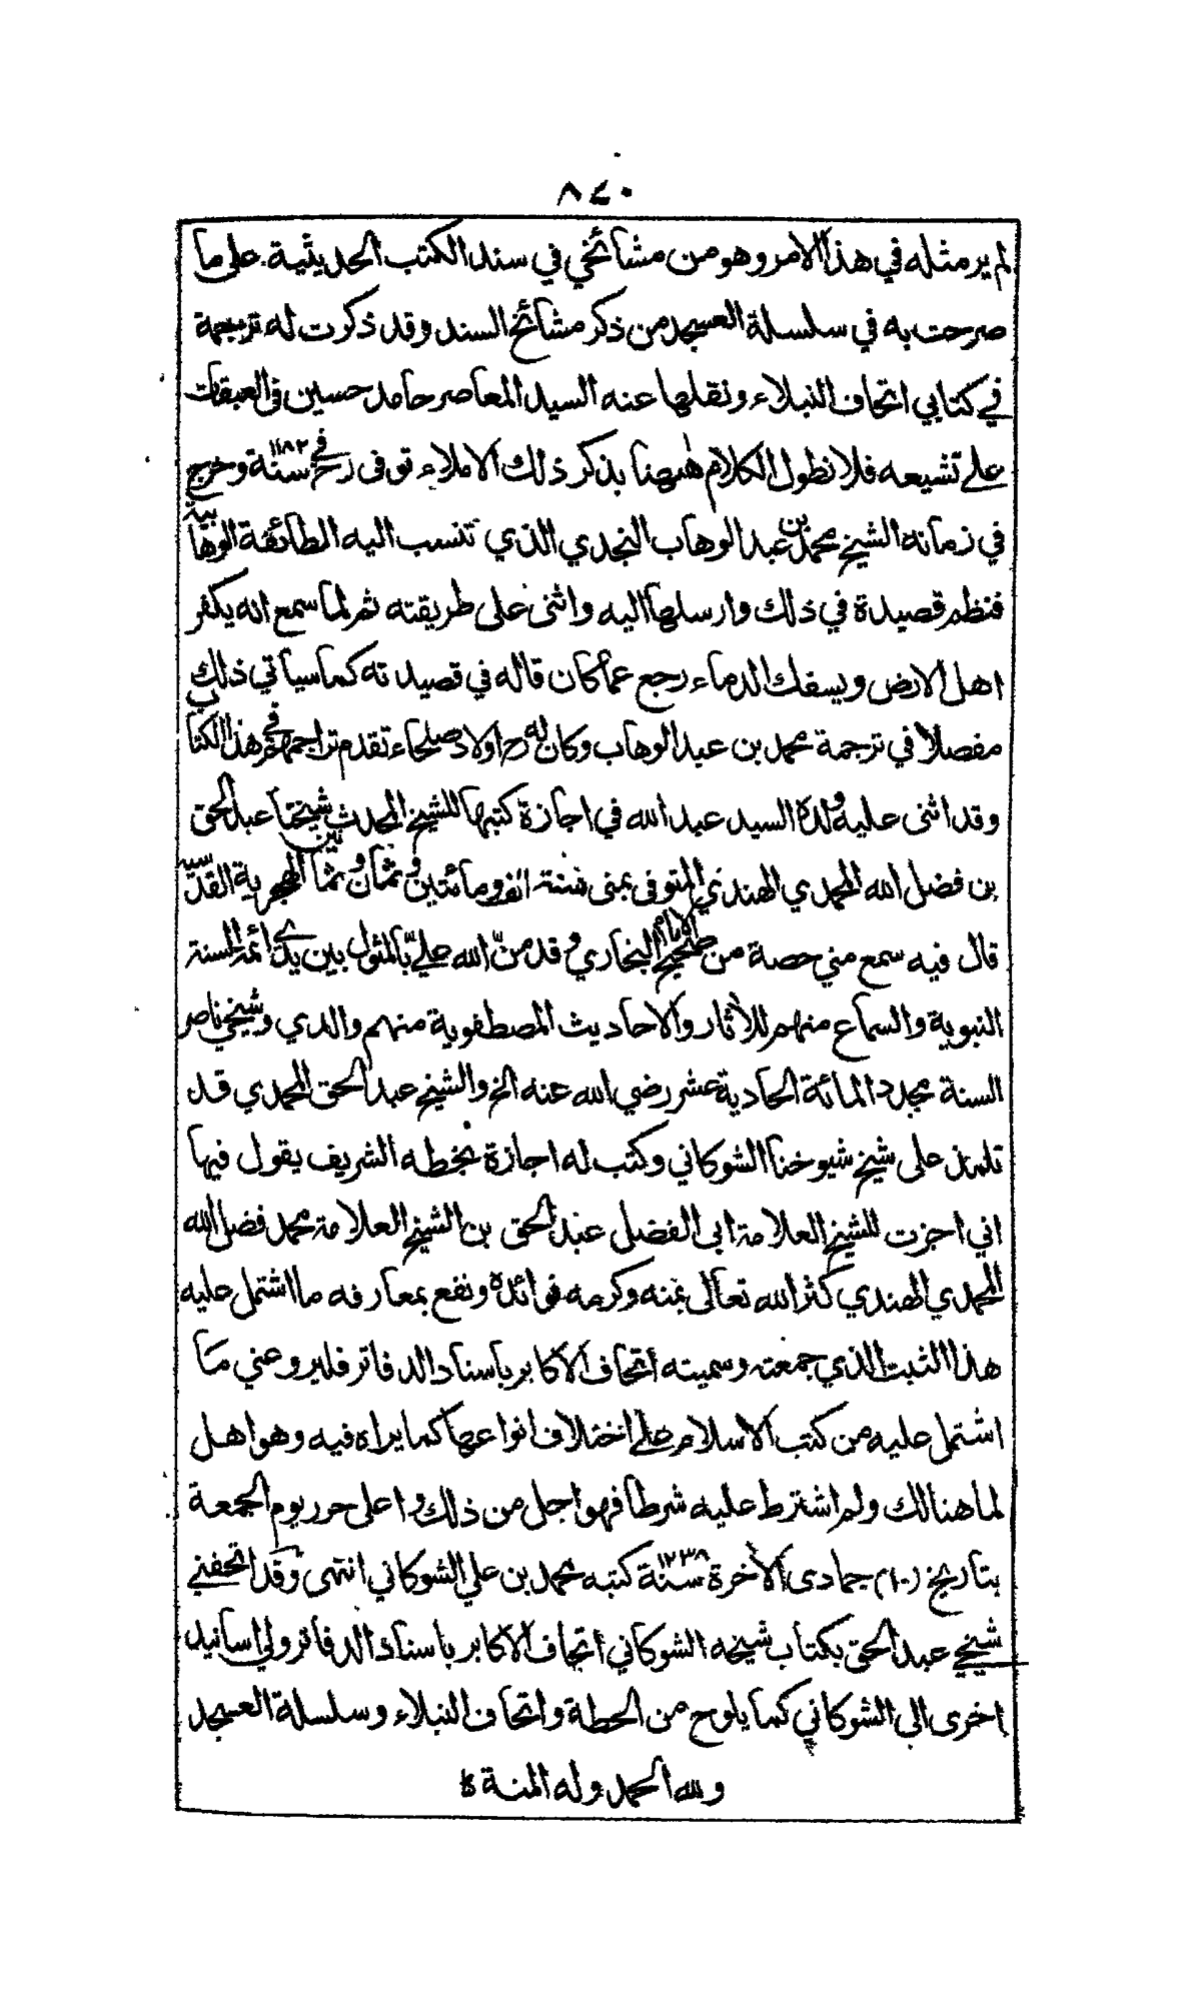 ٨٤٠
لم ير مثله في هذا الامر وهو من مشائخي في سند الكتب الحديثية على ما
صرحت به في سلسلة العسجد من ذكر مشائخ السند وقد ذكرت له ترجمة
في كتابي اتحاف النبلاء ونقلها عنه السيد المعاصر حامد حسين في العبقات
على تشيعه فلا نطول الكلام ههنا بذكر ذلك الاملاء توفى رح في سنة ١١٨٢ وخرج
في زمانه الشيخ محمد بن عبد الوهاب النجدي الذي تنسب اليه الطائفة الوهابية
فنظم قصيدة في ذلك وارسلها اليه واثنى على طريقته ثم لما سمع انه يكفر
اهل الارض ويسفك الدماء رجع عما كان قاله في قصيدته كما سياتي ذلك
مفصلا في ترجمة محمد بن عبد الوهاب وكان له رح اولاد صلحاء تقدم تراجمهم في هذا الكتاب
وقد اثنى عليه ولده السيد عبد الله في اجازة كتبها للشيخ المحدث شيخنا عبد الحق
بن فضل الله المحمدي الهندي المتوفى بمنى سنة الف ومائتين وثمان وثمانين الهجرية القدسية
قال فيه سمع مني حصة من صحيح الامام البخاري وقد من الله علي بالمثول بين يدي ائمة السنة
النبوية والسماع منهم للآثار والاحاديث المصطفوية منهم والدي وشيخي ناصر
السنة مجدد المائة الحادية عشر رضي الله عنه الخ والشيخ عبد الحق المحمدي قد
تلمذ على شيخ شيوخنا الشوكاني وكتب له اجازة بخطه الشريف يقول فيها
اني اجزت للشيخ العلامة ابي الفضل عبد الحق بن الشيخ العلامة محمد فضل الله
المحمدي الهندي كثر الله تعالى بمنه وكرمه فوائده ونفع بمعارفه ما اشتمل عليه
هذا الثبت الذي جمعته وسميته أتحاف الاكابر باسناد الدفاتر فليرو عني ما
اشتمل عليه من كتب الاسلام على اختلاف انواعها كما يراه فيه وهو اهل
لما هنالك ولم اشترط عليه شرطا فهو اجل من ذلك واعلى حرر يوم الجمعة
بتاريخ (١٠) جمادى الآخرة سنة ١٢٣٨ كتبه محمد بن علي الشوكاني انتهى وقد اتحفني
شيخي عبد الحق بكتاب شيخه الشوكاني أتحاف الاكابر باسناد الدفاتر ولي اسانيد
اخرى الى الشوكاني كما يلوح من الحطة واتحاف النبلاء وسلسلة العسجد
ولله الحمد وله المنة